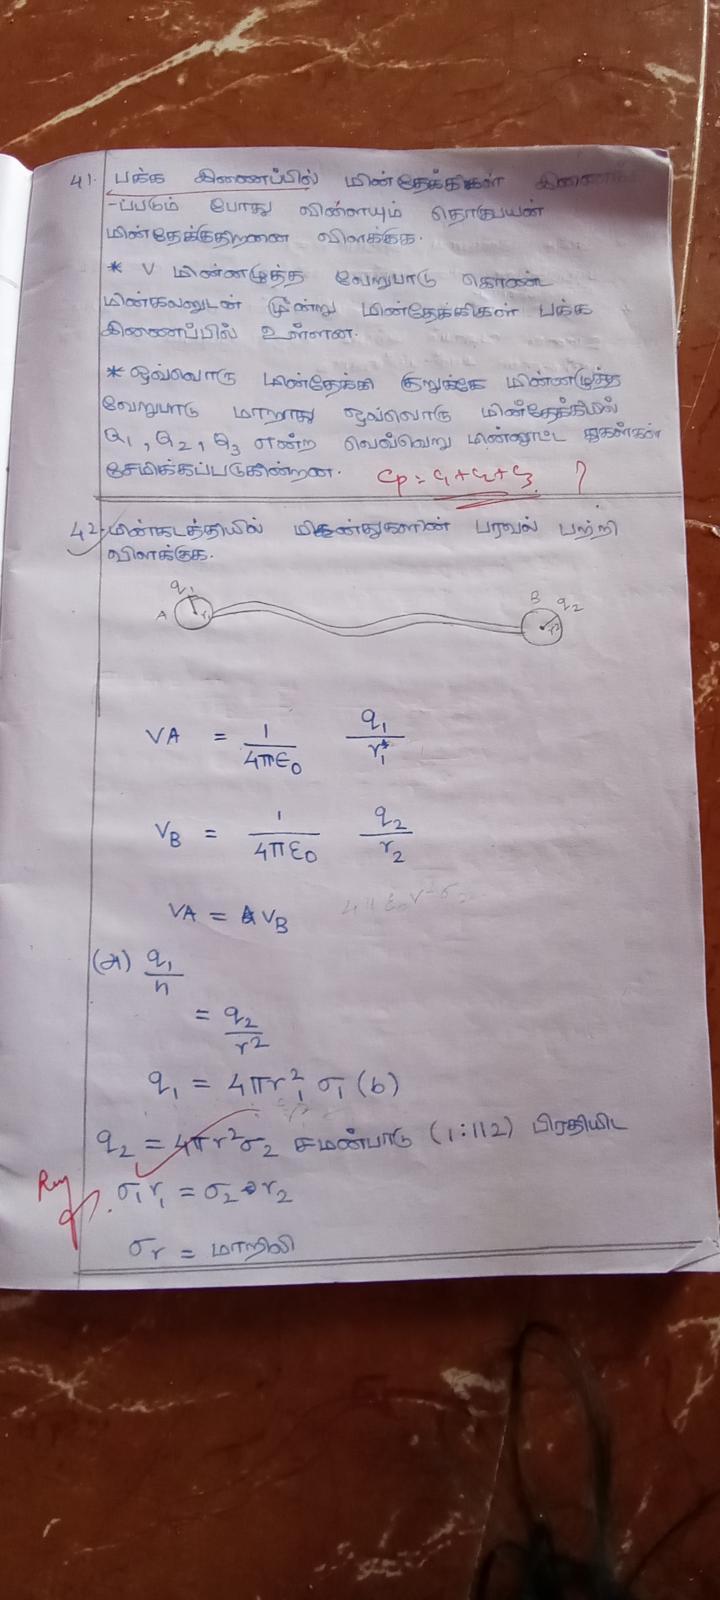 41. பக்க இணைப்பில் மின்தேக்கிகள்
-ப்படும் போது விளையும் தொகுபயன்
மின்தேக்குதிறனை விளக்குக.
* V மின்னழுத்த வேறுபாடு கொண்ட
மின்கலனுடன் மூன்று மின்தேக்கிகள் பக்க
இணைப்பில் உள்ளன.
* ஒவ்வொரு மின்தேக்கி குறுக்கே மின்னழுத்த
வேறுபாடு மாறாது ஒவ்வொரு மின்தேக்கியில்
Q1, Q2, Q3 என்ற வெவ்வெறு மின்னூட்ட துகள்கள்
சேமிக்கப்படுகின்றன. Cp = C1 + C2 + C3 ?
42. மின்கடத்தியில் மின்துகளின் பரவல் பற்றி
விளக்குக.
q1 A r1 B q2 r2
VA = 1/4πε0 q1/r1
VB = 1/4πε0 q2/r2
VA = VB
(அ) q1/r1
= q2/r2
q1 = 4πr1² σ1 (b)
q2 = 4πr²σ2 சமன்பாடு (1:112) பிரதியிட
σ1r1 = σ2 r2
σr = மாறிலி